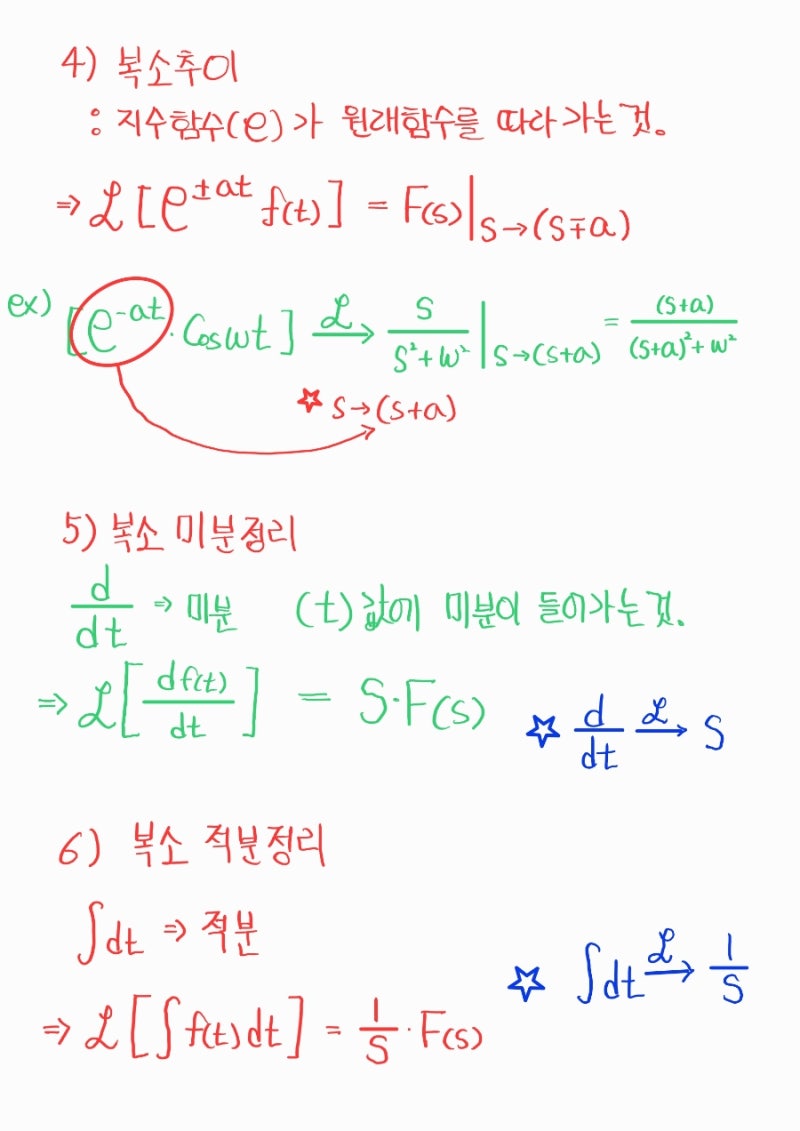 4) 복소추이
: 지수함수(e)가 원래함수를 따라가는것.
⇒ ℒ[e^{±at} f(t)] = F(s)|_{S→(S∓a)}
ex) [e^{-at}·Cosωt] \xrightarrow{ℒ} \frac{S}{S²+ω²}|_{S→(S+a)} = \frac{(S+a)}{(S+a)²+ω²}
☆ S→(S+a)
5) 복소 미분정리
\frac{d}{dt} ⇒ 미분 (t)값에 미분이 들어가는것.
⇒ ℒ[\frac{df(t)}{dt}] = S·F(s)
☆ \frac{d}{dt} \xrightarrow{ℒ} S
6) 복소 적분정리
∫dt ⇒ 적분
☆ ∫dt \xrightarrow{ℒ} \frac{1}{S}
⇒ ℒ[∫f(t)dt] = \frac{1}{S}·F(s)